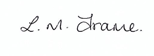 L. M. Frame.